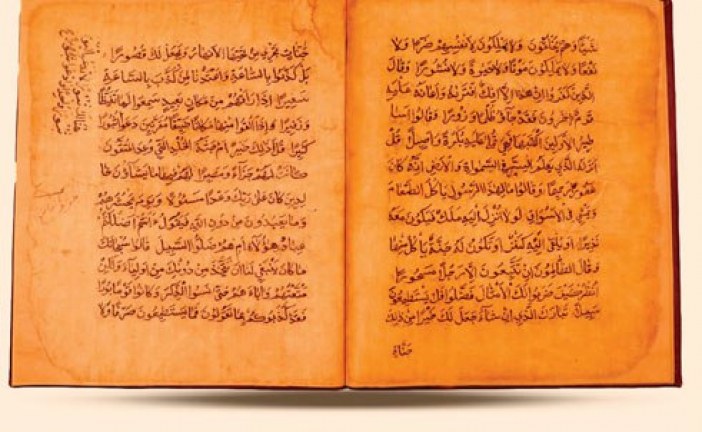 شَيْئًا وَهُمْ يُخْلَقُونَ وَلَا يَمْلِكُونَ لِأَنْفُسِهِمْ ضَرًّا وَلَا
نَفْعًا وَلَا يَمْلِكُونَ مَوْتًا وَلَا حَيٰوةً وَلَا نُشُورًا وَقَالَ
الَّذِينَ كَفَرُوا إِنْ هٰذَا إِلَّا إِفْكٌ افْتَرٰيهُ وَأَعَانَهُ عَلَيْهِ
قَوْمٌ اٰخَرُونَ فَقَدْ جَاؤُ ظُلْمًا وَزُورًا وَقَالُوا أَسَا
طِيرُ الْأَوَّلِينَ اكْتَتَبَهَا فَهِيَ تُمْلٰى عَلَيْهِ بُكْرَةً وَأَصِيلًا قُلْ
أَنْزَلَهُ الَّذِي يَعْلَمُ السِّرَّ فِي السَّمٰوَاتِ وَالْأَرْضِ إِنَّهُ كَانَ
غَفُورًا رَحِيمًا وَقَالُوا مَالِ هٰذَا الرَّسُولِ يَأْكُلُ الطَّعَامَ
وَيَمْشِي فِي الْأَسْوَاقِ لَوْلَا أُنْزِلَ إِلَيْهِ مَلَكٌ فَيَكُونَ مَعَهُ
نَذِيرًا أَوْ يُلْقٰى إِلَيْهِ كَنْزٌ أَوْ تَكُونُ لَهُ جَنَّةٌ يَأْكُلُ مِنْهَا
وَقَالَ الظَّالِمُونَ إِنْ تَتَّبِعُونَ إِلَّا رَجُلًا مَسْحُورًا
انْظُرْ كَيْفَ ضَرَبُوا لَكَ الْأَمْثَالَ فَضَلُّوا فَلَا يَسْتَطِيعُونَ
سَبِيلًا تَبَارَكَ الَّذِي إِنْ شَاءَ جَعَلَ لَكَ خَيْرًا مِنْ ذٰلِكَ
جَنَّاتٍ
جَنَّاتٍ تَجْرِي مِنْ تَحْتِهَا الْأَنْهَارُ وَيَجْعَلْ لَكَ قُصُورًا
بَلْ كَذَّبُوا بِالسَّاعَةِ وَأَعْتَدْنَا لِمَنْ كَذَّبَ بِالسَّاعَةِ
سَعِيرًا إِذَا رَأَتْهُمْ مِنْ مَكَانٍ بَعِيدٍ سَمِعُوا لَهَا تَغَيُّظًا
وَزَفِيرًا وَإِذَا أُلْقُوا مِنْهَا مَكَانًا ضَيِّقًا مُقَرَّنِينَ دَعَوْا هُنَالِكَ ثُبُورًا
كَثِيرًا قُلْ أَذٰلِكَ خَيْرٌ أَمْ جَنَّةُ الْخُلْدِ الَّتِي وُعِدَ الْمُتَّقُونَ
كَانَتْ لَهُمْ جَزَاءً وَمَصِيرًا لَهُمْ فِيهَا مَا يَشَاؤُنَ
خَالِدِينَ كَانَ عَلٰى رَبِّكَ وَعْدًا مَسْؤُلًا وَيَوْمَ يَحْشُرُهُمْ
وَمَا يَعْبُدُونَ مِنْ دُونِ اللّٰهِ فَيَقُولُ ءَأَنْتُمْ أَضْلَلْتُمْ
عِبَادِي هٰؤُلَاءِ أَمْ هُمْ ضَلُّوا السَّبِيلَ قَالُوا سُبْحَانَكَ
مَا كَانَ يَنْبَغِي لَنَا أَنْ نَتَّخِذَ مِنْ دُونِكَ مِنْ أَوْلِيَاءَ وَلٰكِنْ
مَتَّعْتَهُمْ وَاٰبَاءَهُمْ حَتّٰى نَسُوا الذِّكْرَ وَكَانُوا قَوْمًا بُورًا
فَقَدْ كَذَّبُوكُمْ بِمَا تَقُولُونَ فَمَا يَسْتَطِيعُونَ صَرْفًا وَلَا